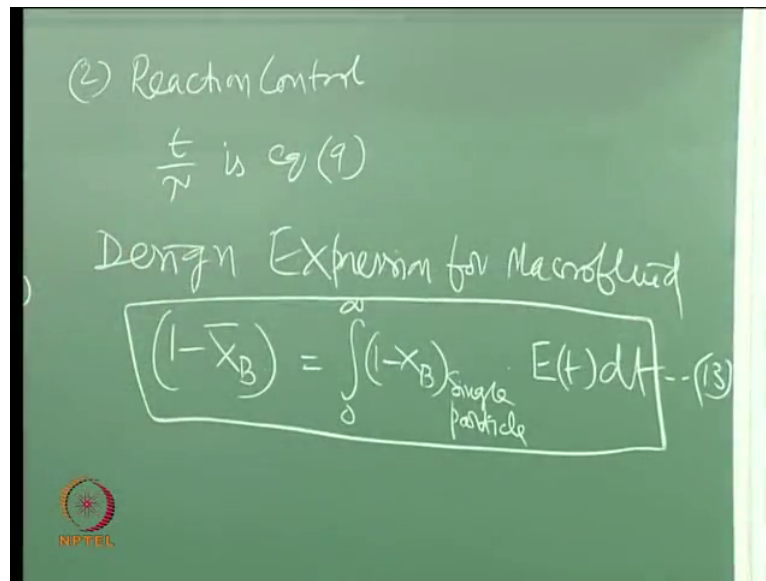 (2) Reaction Control
t/τ is eq (9)
Design Expression for Macrofluid
)
(1-X̄_B) = ∫₀^∞ (1-X_B)_{single particle} E(t) dt --(13)
NPTEL